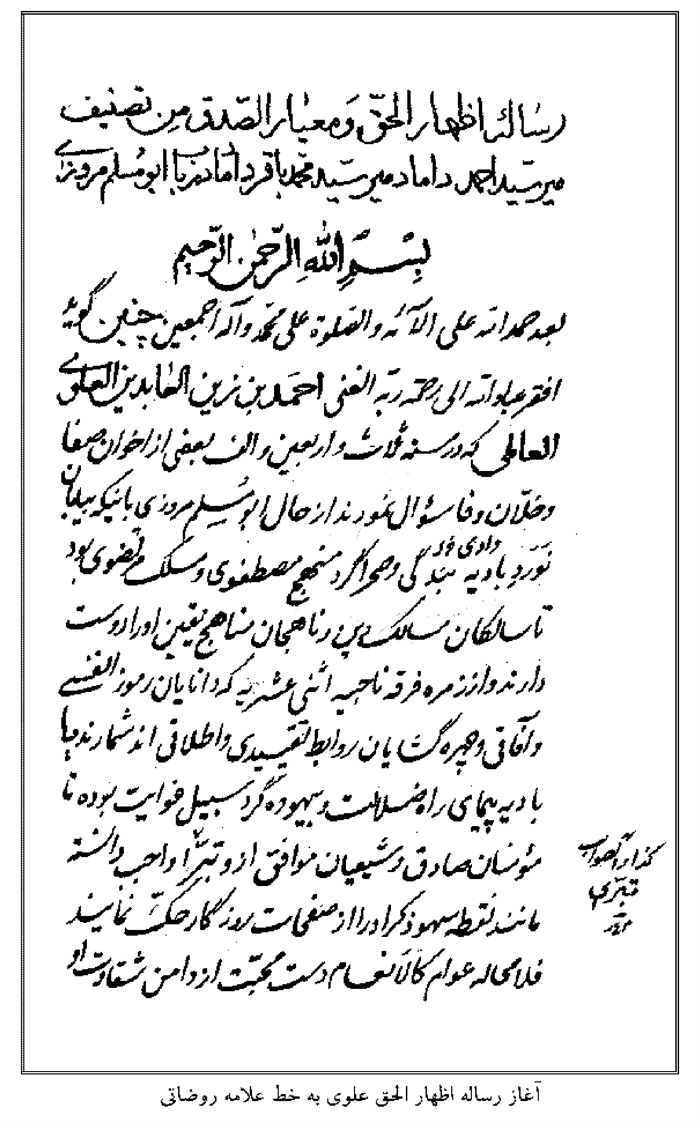 رسالهٔ اظهار الحقّ وَ معیار الصّدق مِن تصنیف
میر سیّد احمد داماد میر سیّد محمّد باقر داماد در باب ابو مُسلم مروزی
بِسْمِ اللهِ الرّحمٰن الرّحیم
بعد حمد الله علی آلائه والصّلوة علی محمّد وآله اجمعین چنین گوید
افقر عباد الله الی رحمة ربّه الغنی احمَد بن زین العابدین العلَوی
العاملی که در سنه ثلاث و اربعین و الف بعضی از اخوان صفا
و خلّان وفا سؤال نمودند از حال ابو مُسلم مروزی بانیکه بیابان
نَوَردِ بادیه بندگی و صحرا گرد منهج مصطفوی و مسلک مرتضوی بود
وادی
تا سالکان مسالک دین و ناهجان مناهج یقین او را دوست
دارند و از زمره فرقه ناجیه اثنی عشریه که دانایان رموز انفسی
و آفاقی و چهره گشایان روابط تقییدی و اطلاقی اند شمارند یا
بادیه پیمای راه ضلالت و بیهوده گرد سبیل غوایت بوده تا
مؤمنان صادق و شیعیان موافق از و تبرّا واجب دانسته
مانند نقطه سهو ذکر او را از صفحات روزگار حکّ نمایند
فلا محاله عوام کالانعام دست محبّت از دامن شقاوت او
کذا و الصواب
تبرّی
آغاز رساله اظهار الحق علوی به خط علامه روضاتی